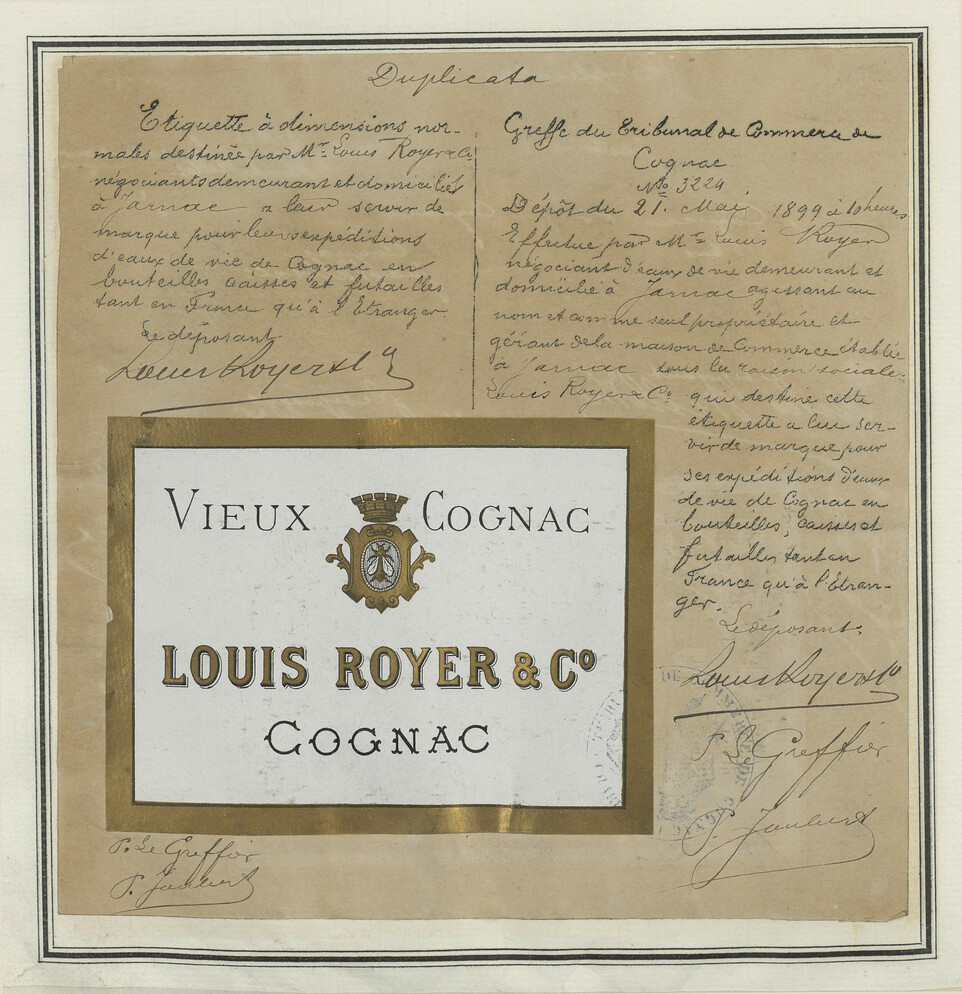 Duplicata
Etiquette à dimensions nor-
males destinée par Mr. Louis Royer & Cie
négociants demeurant et domiciliés
à Jarnac a leur servir de
marque pour leurs expéditions
d'eaux de vie de Cognac en
bouteilles caisses et futailles
tant en France qu'à l'Etranger.
Le déposant
Louis Royer & Co
Greffe du Tribunal de Commerce de
Cognac
No 3224
Dépôt du 21. Mai 1899 à 10 heures
Effectué par Mr Louis Royer
négociant d'eaux de vie demeurant et
domicilié à Jarnac agissant au
nom et comme seul propriétaire et
gérant de la maison de Commerce établie
à Jarnac sous la raison sociale:
Louis Royer & Co qui destine cette
étiquette a leur ser-
vir de marque pour
ses expéditions d'eaux
de vie de Cognac en
bouteilles, caisses et
futailles tant en
France qu'à l'Etran-
ger.
Le déposant:
Louis Royer & Co
P. Le Greffier
P. Joubert
VIEUX COGNAC
LOUIS ROYER & Co
COGNAC
P. Le Greffier
P. Joubert
DE COMMERCE DE COGNAC